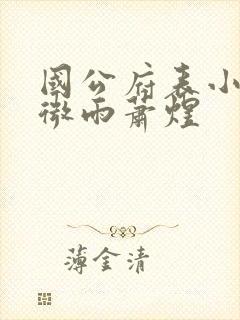 國公府表小
微雨蕭煌
薄金清